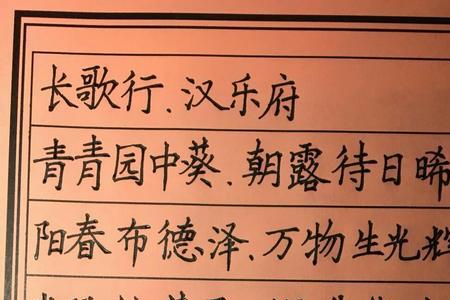 长歌行、汉乐府
青青园中葵、朝露待日晞
阳春布德泽、万物生光辉